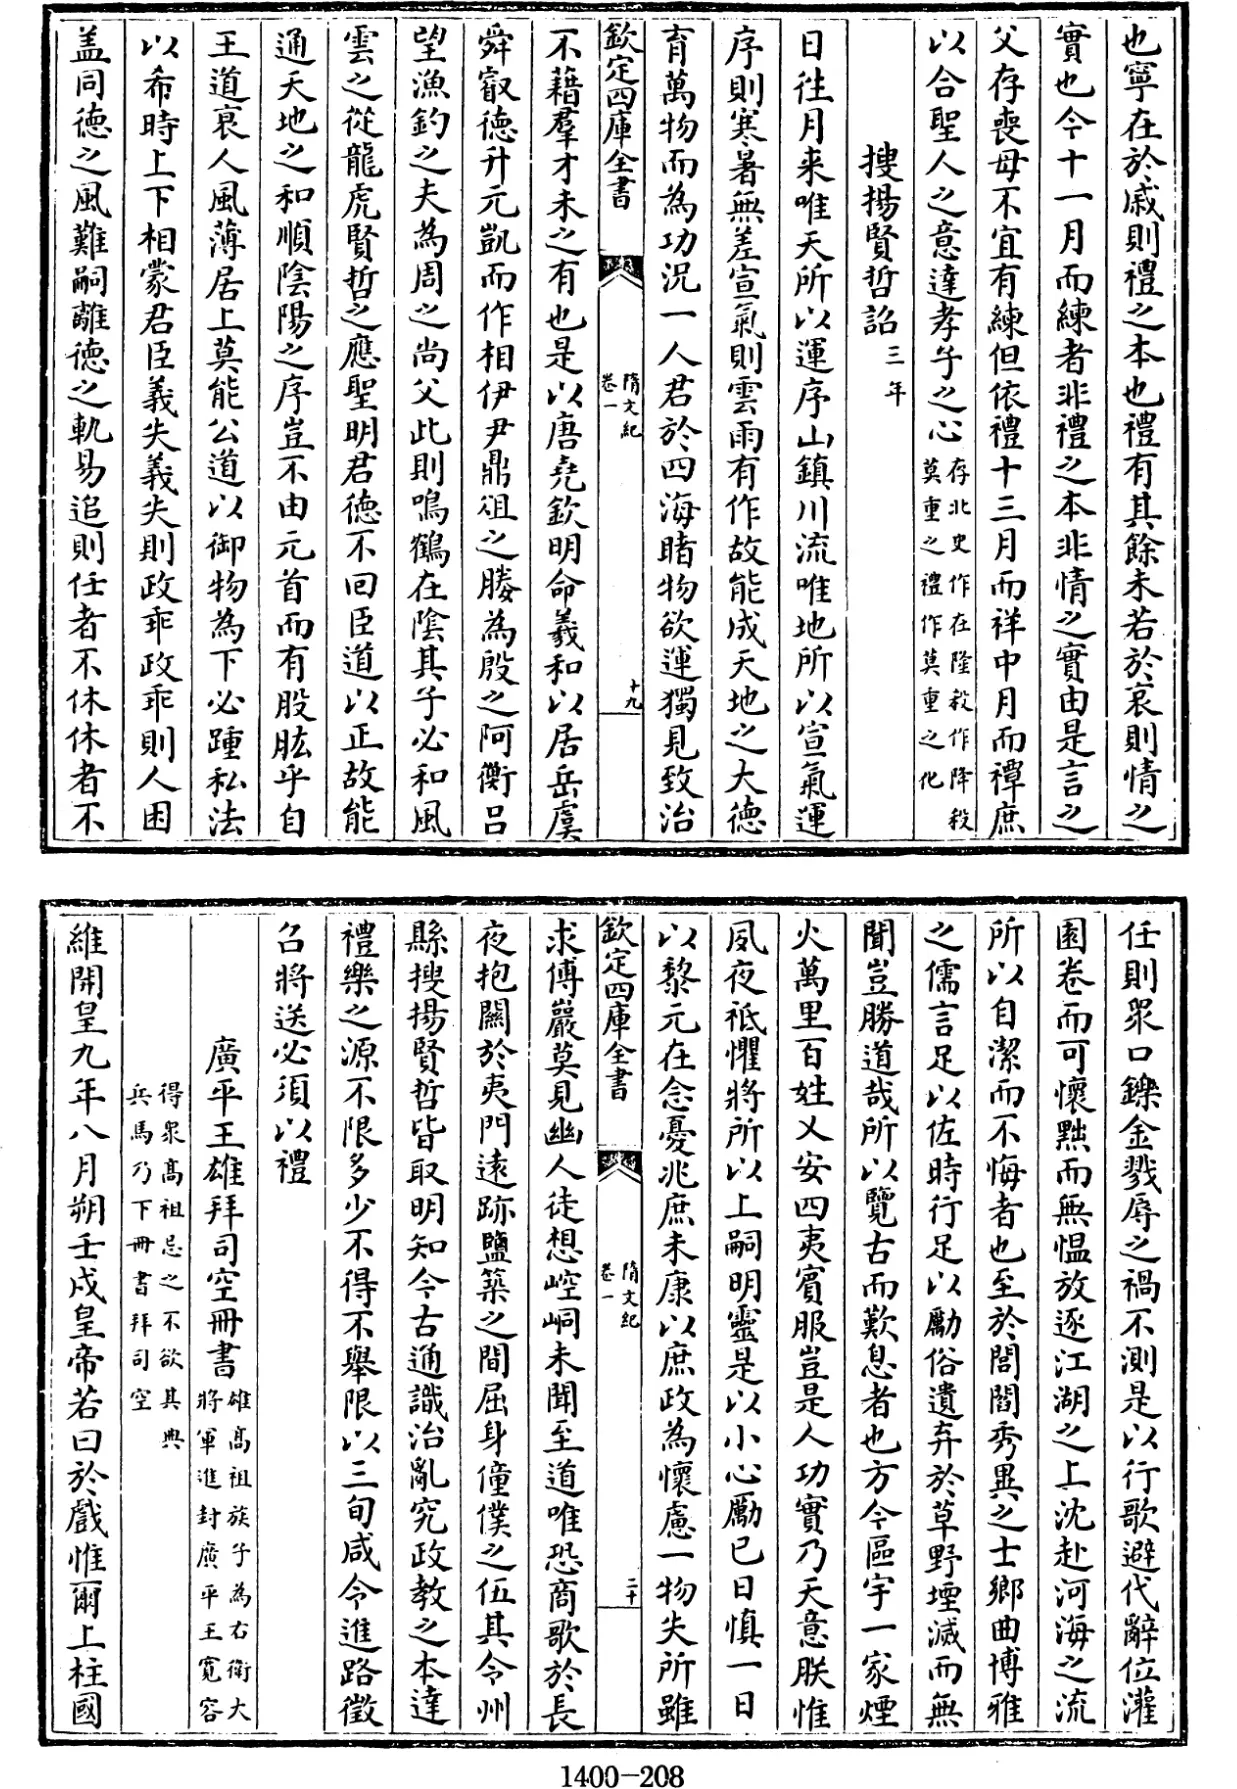 也寧在於戚則禮之本也禮有其餘未若於哀則情之
實也今十一月而練者非禮之本非情之實由是言之
父存喪母不宜有練但依禮十三月而祥中月而禫庶
以合聖人之意達孝子之心存北史作在隆殺作降殺
莫重之禮作莫重之化
搜揚賢哲詔三年
日往月来唯天所以運序山鎮川流唯地所以宣氣運
序則寒暑無差宣氣則雲雨有作故能成天地之大德
育萬物而為功況一人君於四海睹物欲運獨見致治
欽定四庫全書
隋文紀
卷一
十九
不藉羣才未之有也是以唐堯欽明命羲和以居岳虞
舜叡德升元凱而作相伊尹鼎俎之媵為殷之阿衡呂
望漁釣之夫為周之尚父此則鳴鶴在陰其子必和風
雲之從龍虎賢哲之應聖明君德不回臣道以正故能
通天地之和順陰陽之序豈不由元首而有股肱乎自
王道衰人風薄居上莫能公道以御物為下必踵私法
以希時上下相蒙君臣義失義失則政乖政乖則人困
盖同德之風難嗣離德之軌易追則任者不休休者不
任則衆口鑠金戮辱之禍不測是以行歌避代辭位灌
園卷而可懷黜而無愠放逐江湖之上沈赴河海之流
所以自潔而不悔者也至於閭閻秀異之士鄉曲博雅
之儒言足以佐時行足以勵俗遺弃於草野堙滅而無
聞豈勝道哉所以覽古而歎息者也方今區宇一家煙
火萬里百姓乂安四夷賓服豈是人功實乃天意朕惟
夙夜祗懼將所以上嗣明靈是以小心勵己日慎一日
以黎元在念憂兆庶未康以庶政為懷慮一物失所雖
欽定四庫全書
隋文紀
卷一
二十
求傅巖莫見幽人徒想崆峒未聞至道唯恐商歌於長
夜抱關於夷門遠跡鹽築之間屈身僮僕之伍其令州
縣搜揚賢哲皆取明知今古通識治亂究政教之本達
禮樂之源不限多少不得不舉限以三旬咸令進路徵
召將送必須以禮
廣平王雄拜司空冊書雄高祖族子為右衛大
將軍進封廣平王寛容
得衆高祖忌之不欲其典
兵馬乃下冊書拜司空
維開皇九年八月朔壬戌皇帝若曰於戲惟爾上柱國
1400-208